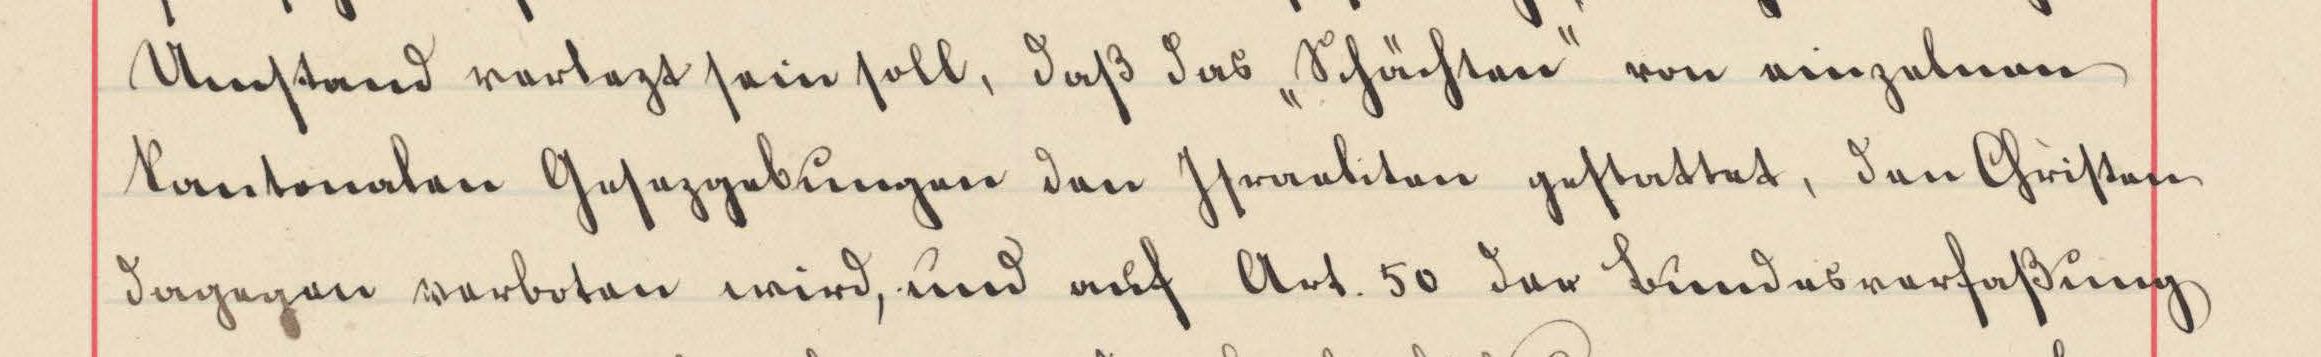 Umstand verlezt sein soll, daß das „Schächten" von einzelnen
kantonalen Gesezgebungen den Israeliten gestattet, den Christen
dagegen verboten wird, und auf Art. 50 der Bundesverfaßung